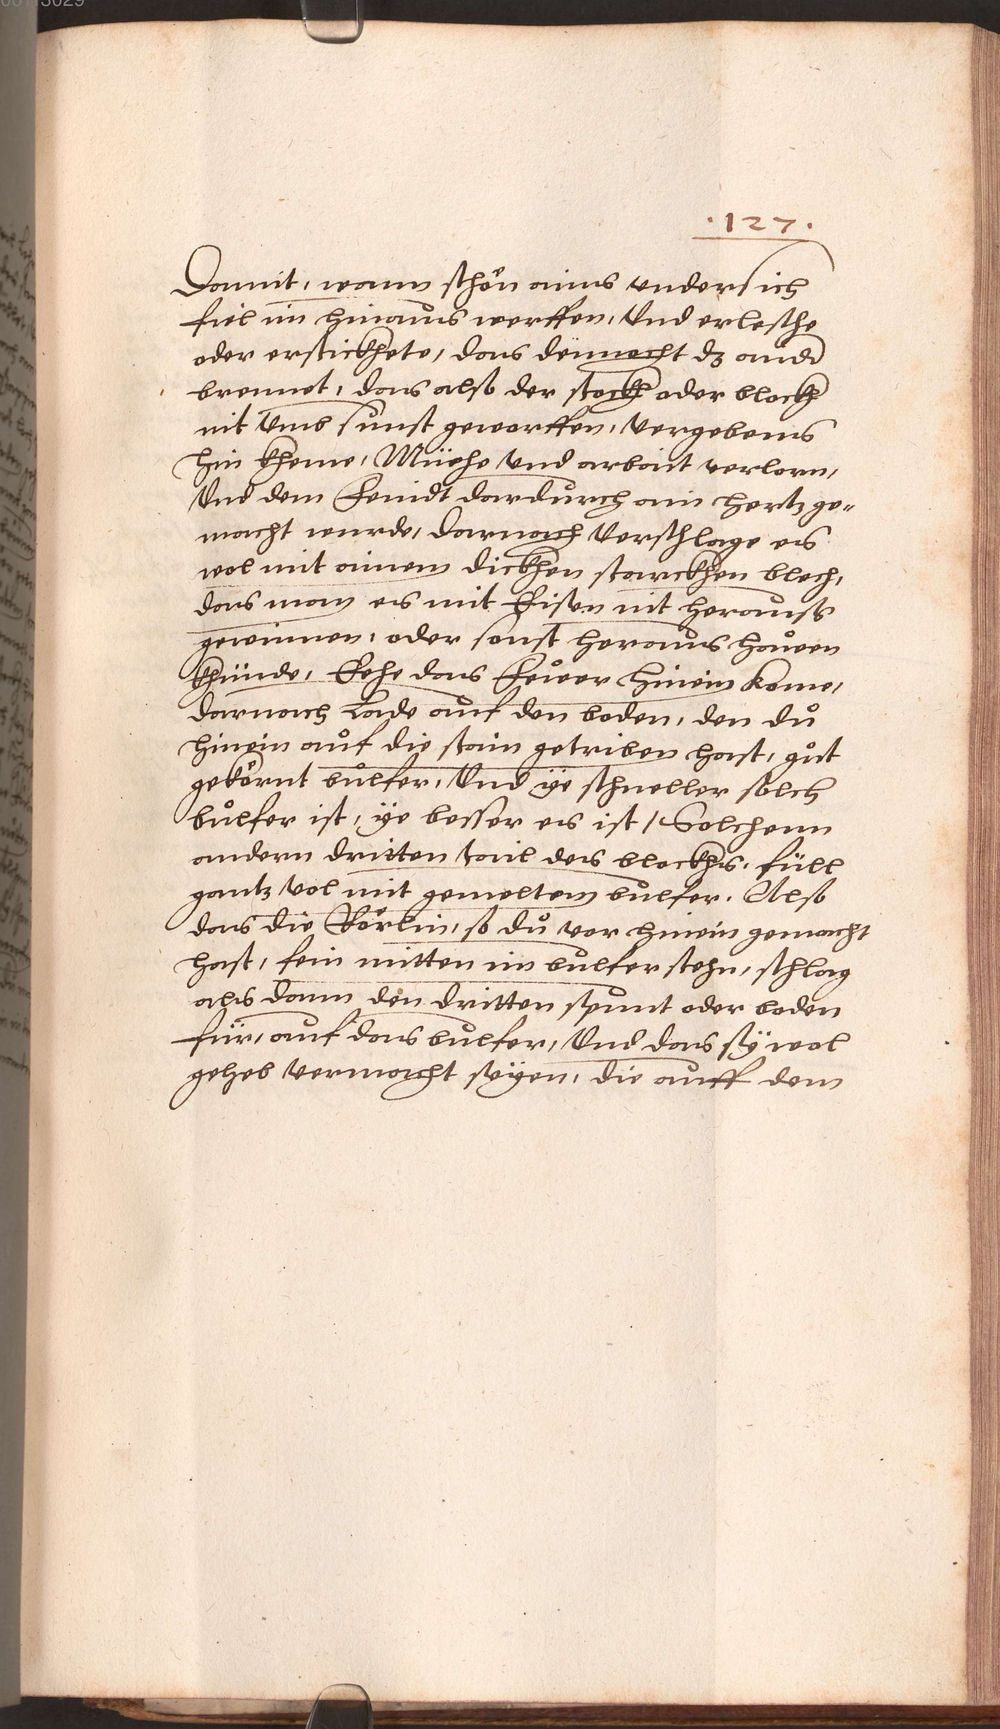 .127.
Damit, wann schon ains undersich
fiel im hinaus werffen, Und erlesche
oder erstickhete, das dennocht dz ander
brennet, das also der stockh oder blockh
nit Umb sunst geworffen, vergebens
hin kheme, Müehe Und arbait verlorn,
Und dem Feindt dardurch ain hertz ge-
macht wurde, Darnach Verschlage es
wol mit ainem dickhen starckhen blech,
das man es mit Eisen nit herauß
gewinnen, oder sonst heraus hawen
khünde, Eehe das Fewer hinein kome,
darnach Lade auf den boden, den du
hinein auf die stain getriben hast, gut
gekörnt bulfer, Und ye schneller solch
bulfer ist, ye besser es ist / Solchenn
andern dritten tail des blockhs, füll
gantz vol mit gemeltem bulfer. Also
das die Rörlin, so du vor hinein gemacht
hast, fein mitten im bulfer stehn, schlag
als dann den dritten spunt oder boden
für, auf das bulfer, Und das sy wol
geheb vermacht seyen, die auff dem